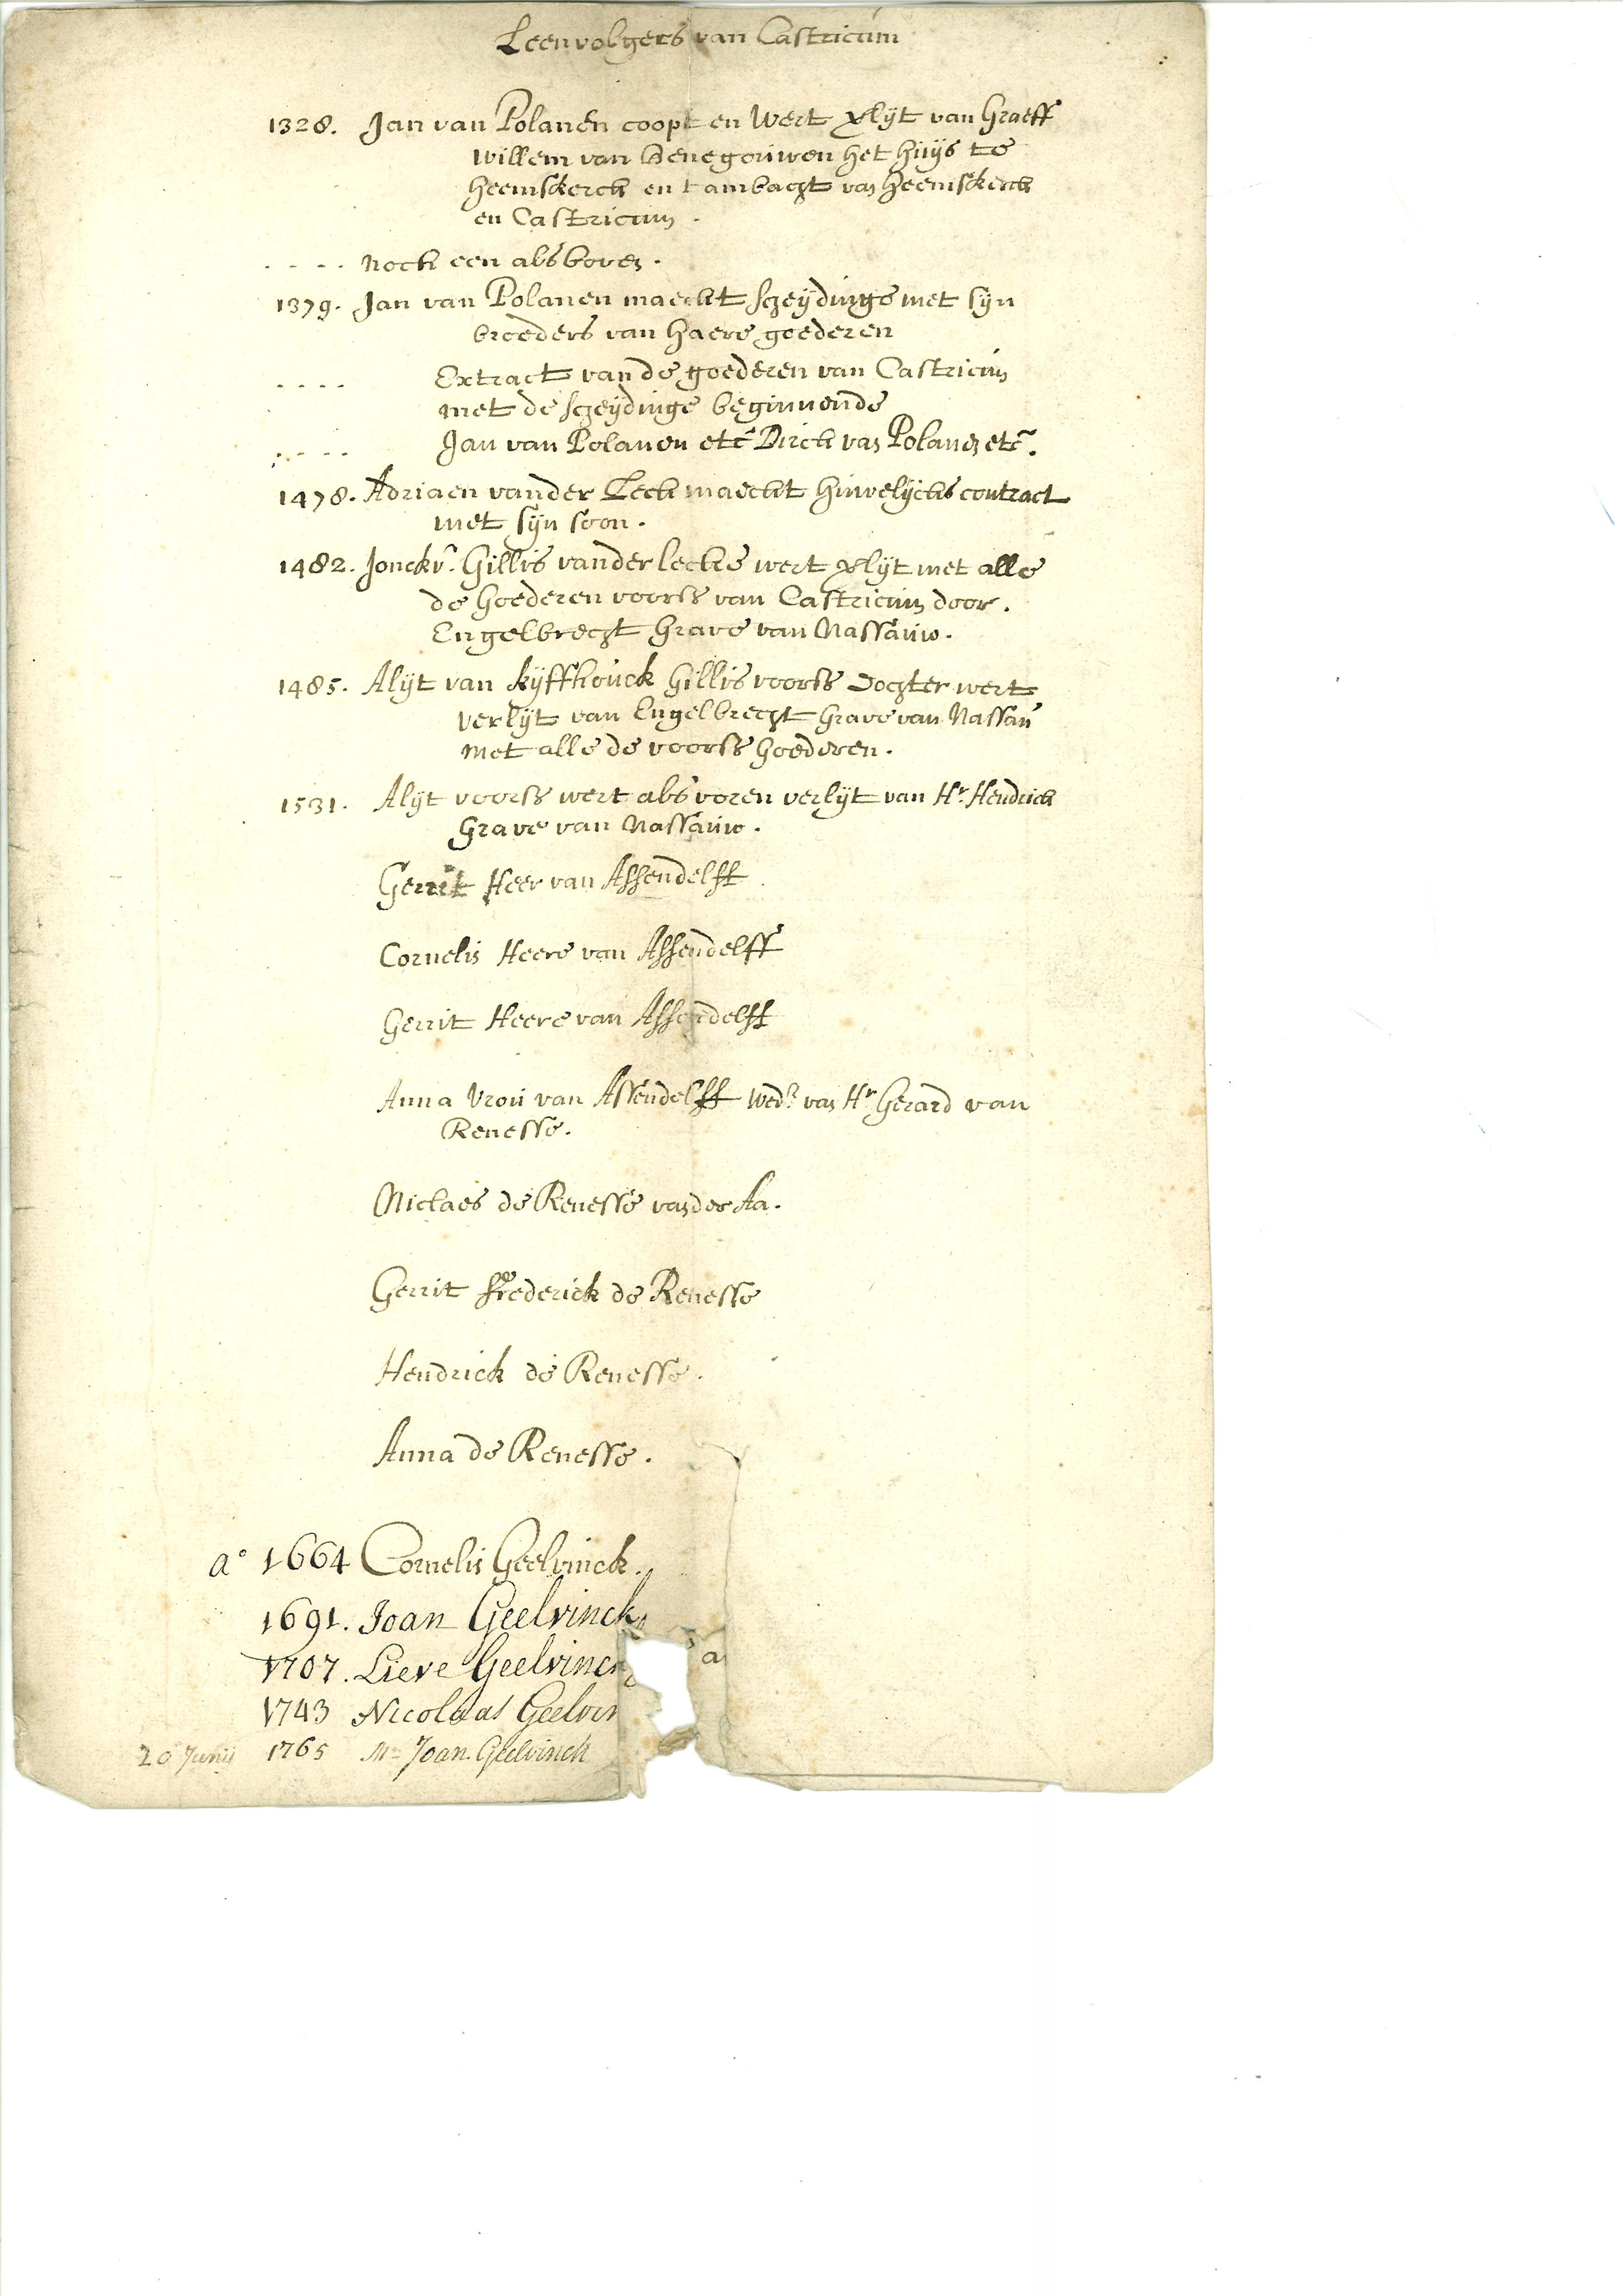 Leenvolgers van Castricum
1328. Jan van Polanen coopt en Wert vlijt van Graeff
Willem van Henegouwen het huijs te
heemskerck en t ambacht van heemskerck
en Castricum.
.... noch een als boven.
1379. Jan van Polanen maeckt scheijdinge met sijn
broeders van haere goederen
.... Extract van de goederen van Castricum
met de scheijdinge beginnende
.... Jan van Polanen etc Dirck van Polanen etc.
1478. Adriaen vander Leck maeckt huwelijcks contract
met sijn soon.
1482. Jonckr. Gillis vander lecke wert vlijt met alle
de goederen voors van Castricum door.
Engelbrecht Grave van Nassauw.
1485. Alijt van kijffhouck Gillis voors dochter wert
verlijt van Engelbrecht Grave van Nassau
met alle de voors goederen.
1531. Alijt voors wert als voren verlijt van Hr. Hendrick
Grave van Nassauw.
Gerrit Heer van Assendelft
Cornelis Heere van Assendelff
Gerrit Heere van Assendelft
Anna Vrou van Assendelft Wede van Hr Gerard van
Renesse.
Niclaes de Renesse vander Aa.
Gerrit Frederick de Renesse
Hendrick de Renesse.
Anna de Renesse.
ao 1664 Cornelis Geelvinck.
1691. Joan Geelvinck
1707. Lieve Geelvinck a
1743 Nicolaas Geelvin
20 Junij 1765 Mr Joan Geelvinck